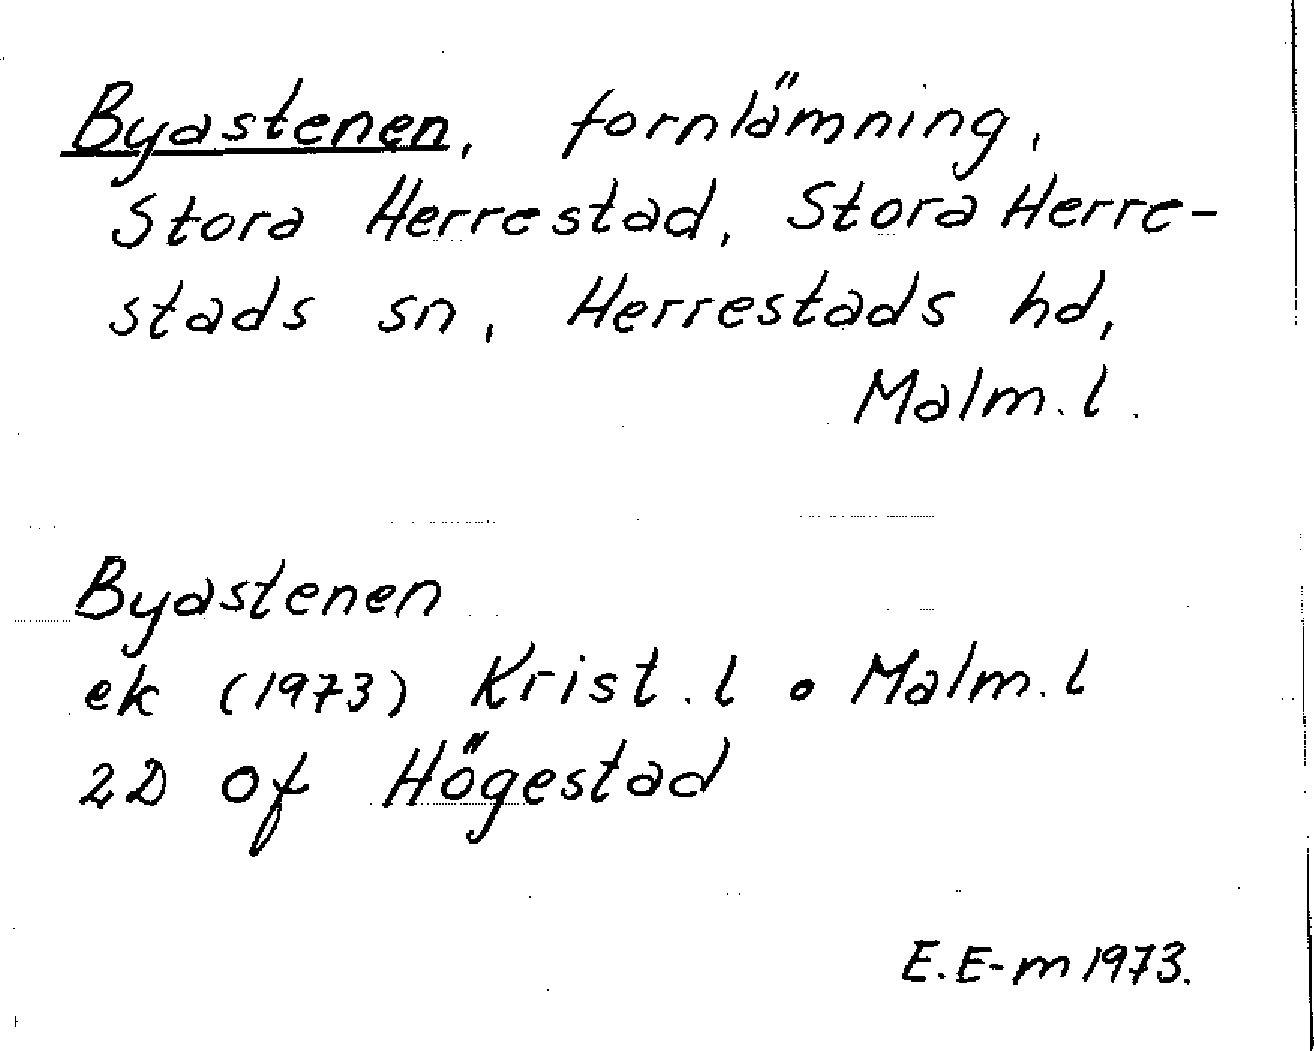 Byastenen, fornlämning,
Stora Herrestad, Stora Herre-
stads sn, Herrestads hd,
Malm. l.
Byastenen
ek (1973) Krist. l o Malm. l
2D 0f Högestad
E. E-m 1973.